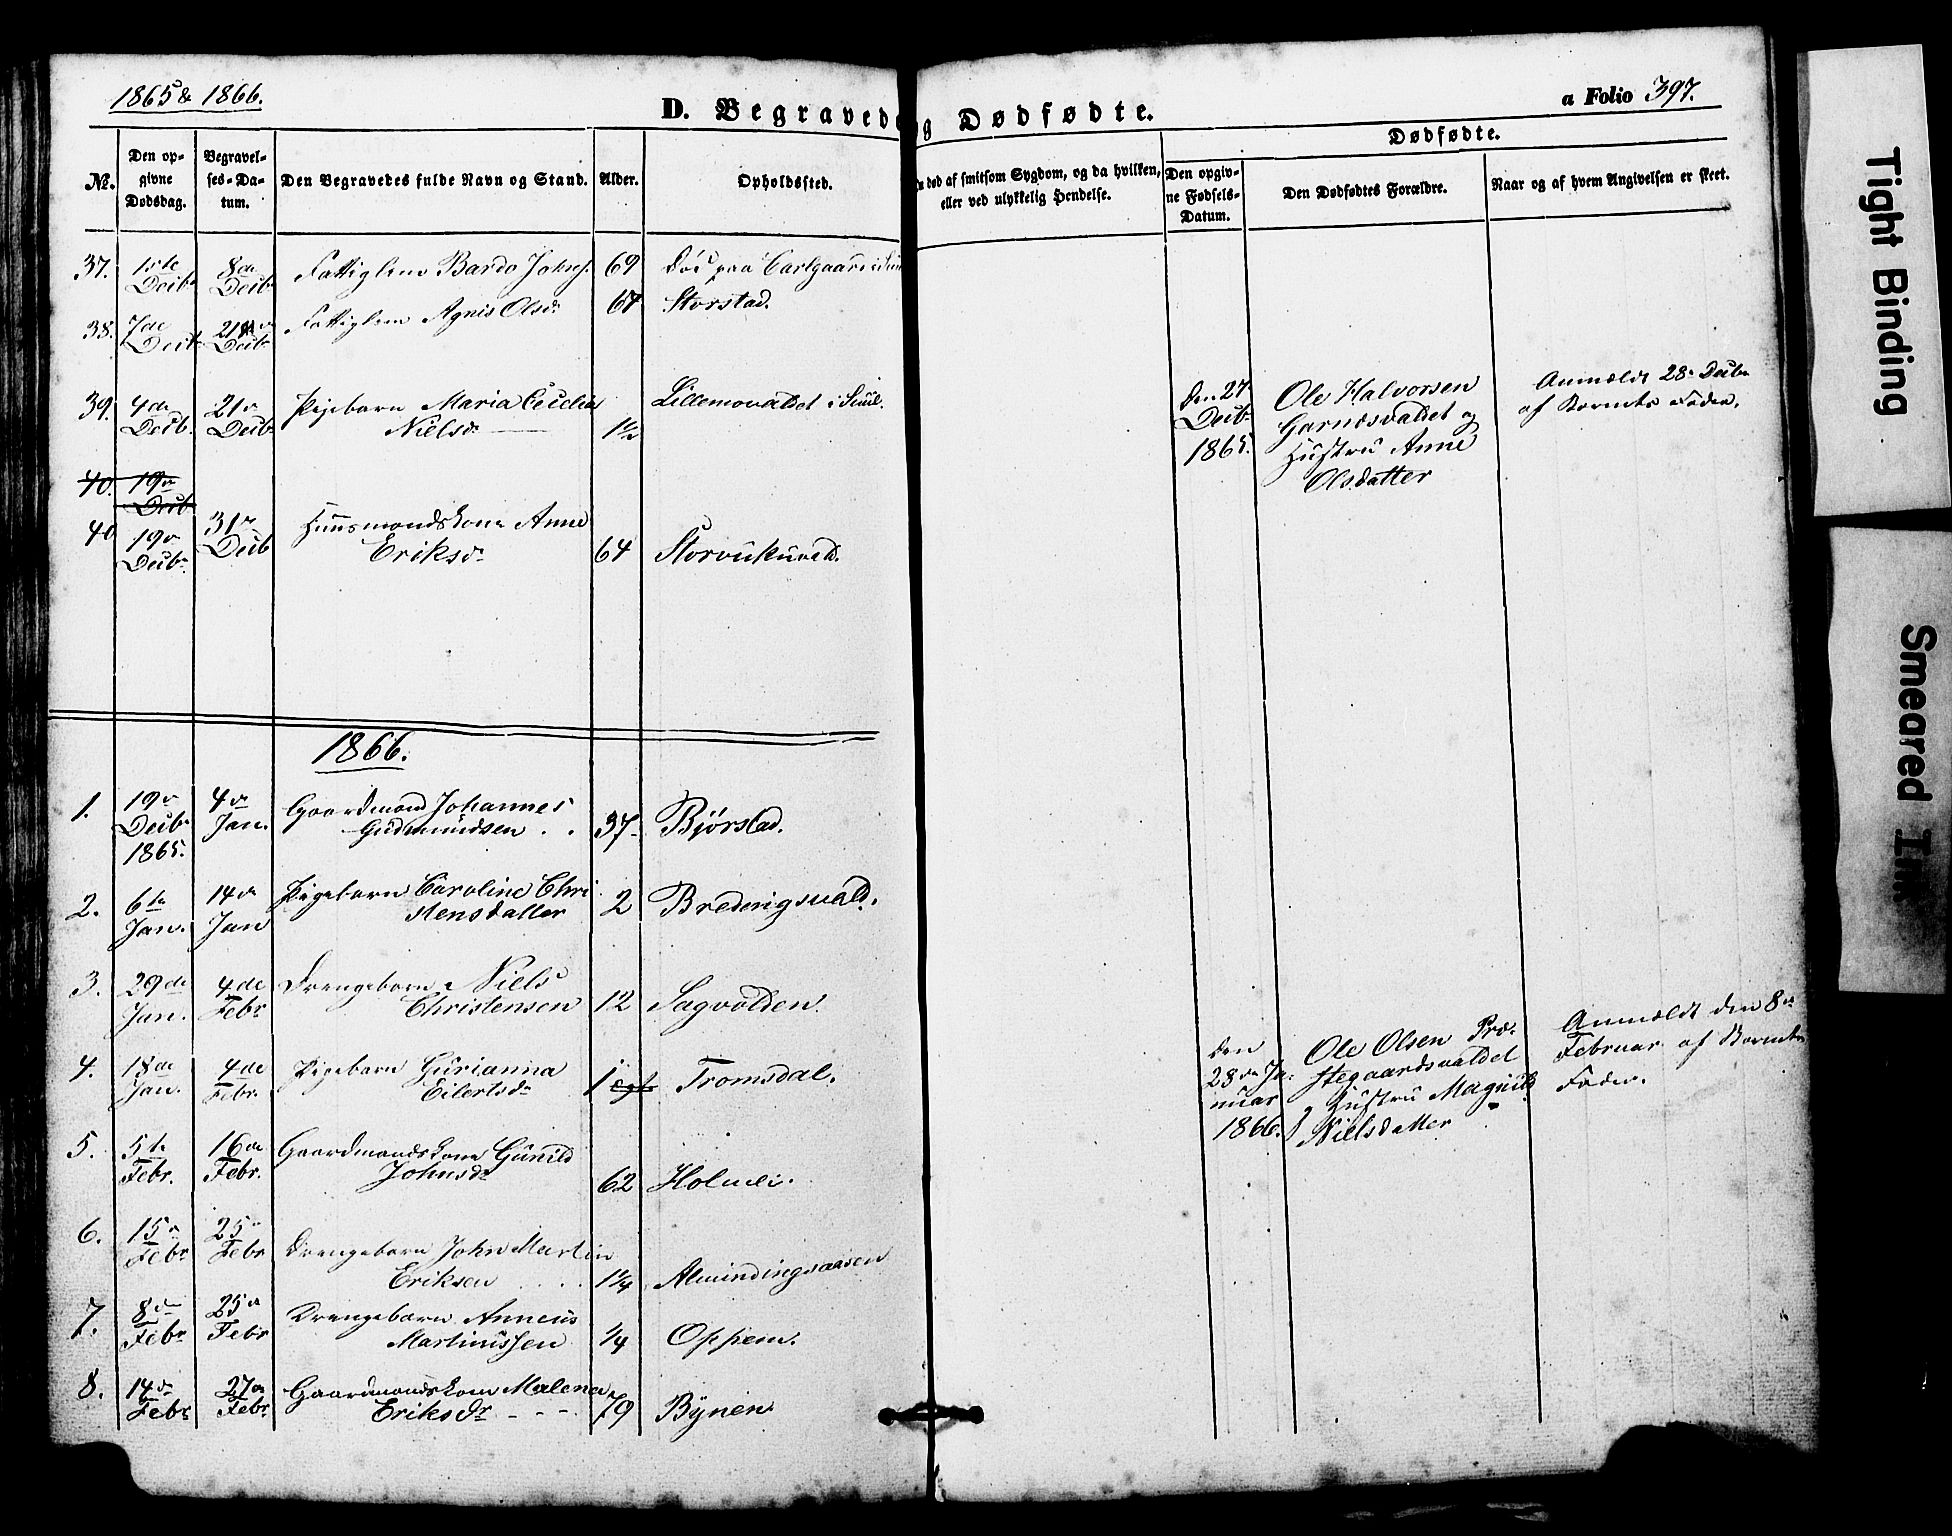 1865 & 1866.
D. Begravede og Dødfødte.
a Folio 397.
Dødfødte.
No.
Den op-
givne
Dødsdag.
Begravel-
ses-Da-
tum.
Den Begravedes fulde Navn og Stand.
Alder.
Opholdssted.
død af smitsom Sygdom, og da hvilken,
eller ved ulykkelig Hendelse.
Den opgiv-
ne Fødsels-
Datum.
Den Dødfødtes Forældre.
Naar og af hvem Angivelsen er skeet.
37. 1ste Decbr 8de Decbr Fattiglem Bardo Johns. 69 Død paa
38. 7de Decbr 21de Decbr Fattiglem Agnis Olsdr 67 Storstad.
39. 4de Decb. 21de Decbr Pigebarn Maria Cecelia
Nielsdr 1½ Lillemovaldet i
Den 27
Decbr
1865.
Ole Halvorsen
Garnæsvaldet og
Hustru Anne
Olsdatter
Anmældt 28de Decbr
af Barnets Fader.
40. 19de
Decb
40 19de Decbr 31te Decb Huusmandskone Anne
Eriksdr 64
1866.
1. 19de Decbr 1865. 4de Jan. Gaardmand Johannes
Gudmundsen . . 37 Bjørstad.
2. 6te Jan. 14de Jan Pigebarn Caroline Chri
stensdatter 2 Bredingsvald.
3. 29de Jan. 4de Febr Drengebarn Niels
Christensen 12 Sagvolden.
4. 18de Jan. 4de Febr. Pigebarn Gurianna
Eilertsdr 1 Tromsdal.
den
28de Ja-
nuar
1866.
Ole Olsen Præ-
stegaardsvaldet
Hustru Magnild
Nielsdatter
Anmældt den 8de
Februar af Barnets
Fader.
5. 5te Febr. 16de Febr. Gaardmandskone Gunild
Johnsdr 62 Holmli.
6. 15de Febr 25de Febr Drengebarn John Martin
Eriksen 1¼ Almindingsaasen
7. 8de Febr 25de Febr Drengebarn Anneus
Martinussen ¼ Oppem.
8. 14de Febr 27de Febr Gaardmandskone Malena
Eriksdr 79 Bynen
Tight Binding
Smeared Ink